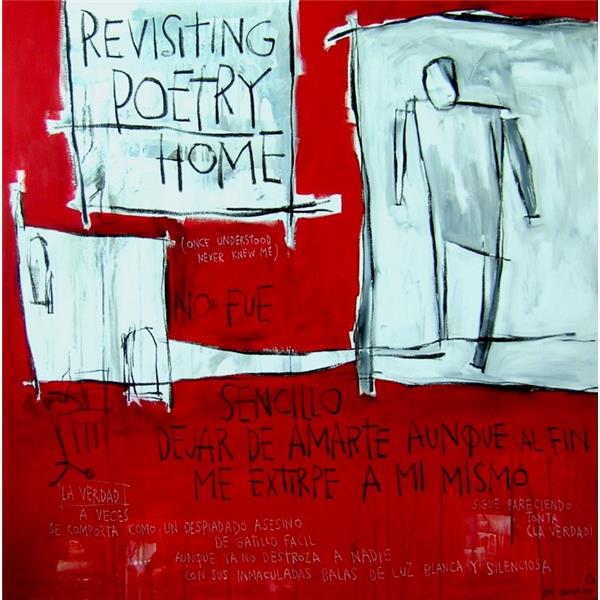 REVISITING
POETRY
HOME
(ONCE UNDERSTOOD
NEVER KNEW ME)
NO FUE
SENCILLO
DEJAR DE AMARTE AUNQUE AL FIN
ME EXTIRPE A MI MISMO
LA VERDAD
A VECES
SE COMPORTA COMO UN DESPIADADO ASESINO
DE GATILLO FACIL
AUNQUE YA NO DESTROZA A NADIE
CON SUS INMACULADAS BALAS DE LUZ BLANCA Y SILENCIOSA
SIGUE PARECIENDO
TONTA
(LA VERDAD)